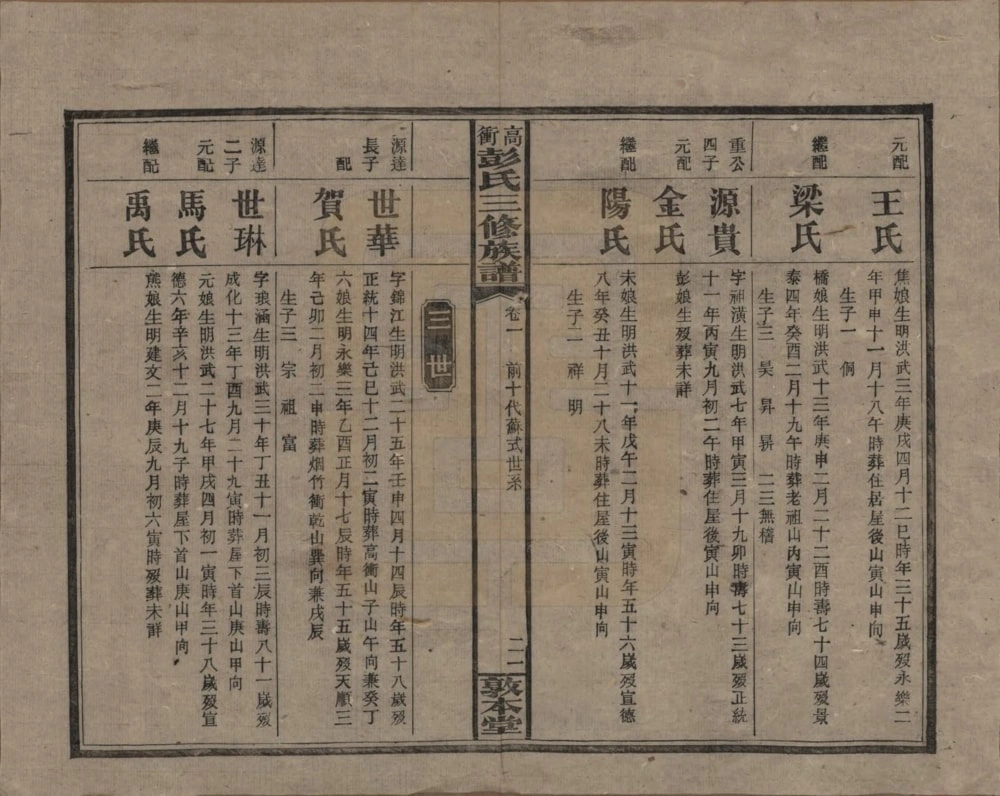 元配
王氏
焦娘生明洪武三年庚戌四月十二巳時年三十五歲歿永樂二
年甲申十一月十八午時葬住居屋後山寅山申向
生子一 侗
繼配
梁氏
橋娘生明洪武十三年庚申二月二十二酉時壽七十四歲歿景
泰四年癸酉二月十九午時葬老祖山內寅山申向
生子三 昊 昇 昪 二三無稽
重公
四子
源貴
字神潢生明洪武七年甲寅三月十九卯時壽七十三歲歿正統
十一年丙寅九月初二午時葬住屋後寅山申向
元配
金氏
彭娘生歿葬未詳
繼配
陽氏
未娘生明洪武十一年戊午二月十三寅時年五十六歲歿宣德
八年癸丑十月二十八未時葬住屋後山寅山申向
生子二 祥 明
高衝彭氏三修族譜
卷一 前十代蘇式世系
二一
敦本堂
三世
源達
長子
世華
字錦江生明洪武二十五年壬申四月十四辰時年五十八歲歿
正統十四年己巳十二月初二寅時葬高衝山子山午向兼癸丁
配
賀氏
六娘生明永樂三年乙酉正月十七辰時年五十五歲歿天順三
年己卯二月初二申時葬烟竹衝乾山巽向兼戌辰
生子三 宗 祖 富
源達
二子
世琳
字琅涵生明洪武三十年丁丑十一月初三辰時壽八十一歲歿
成化十三年丁酉九月二十九寅時葬屋下首山庚山甲向
元配
馬氏
元娘生明洪武二十七年甲戌四月初一寅時年三十八歲歿宣
德六年辛亥十二月十九子時葬屋下首山庚山甲向
繼配
禹氏
熊娘生明建文二年庚辰九月初六寅時歿葬未詳